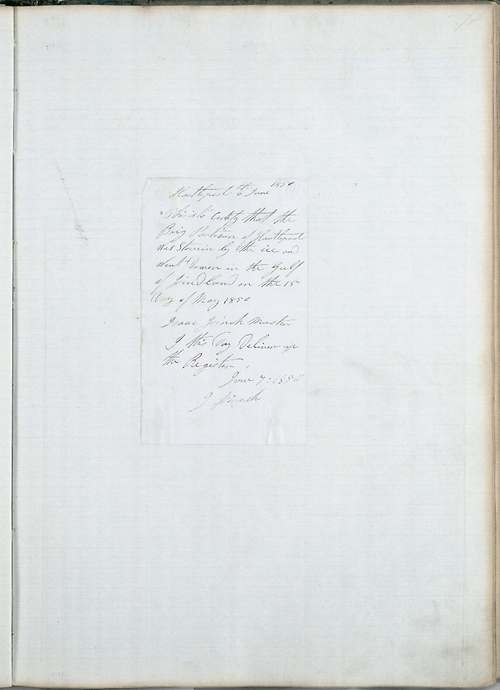 Hartlepool 6 June 1850
this is to Certify that the
Brig of Hartlepool
was Stove in by the ice and
went Down in the Gulf
of Findland on the 15
Day of May 1850
Isaac Finch Master
I this Day Deliver up
the Register
June 7 : 1850
I Finch